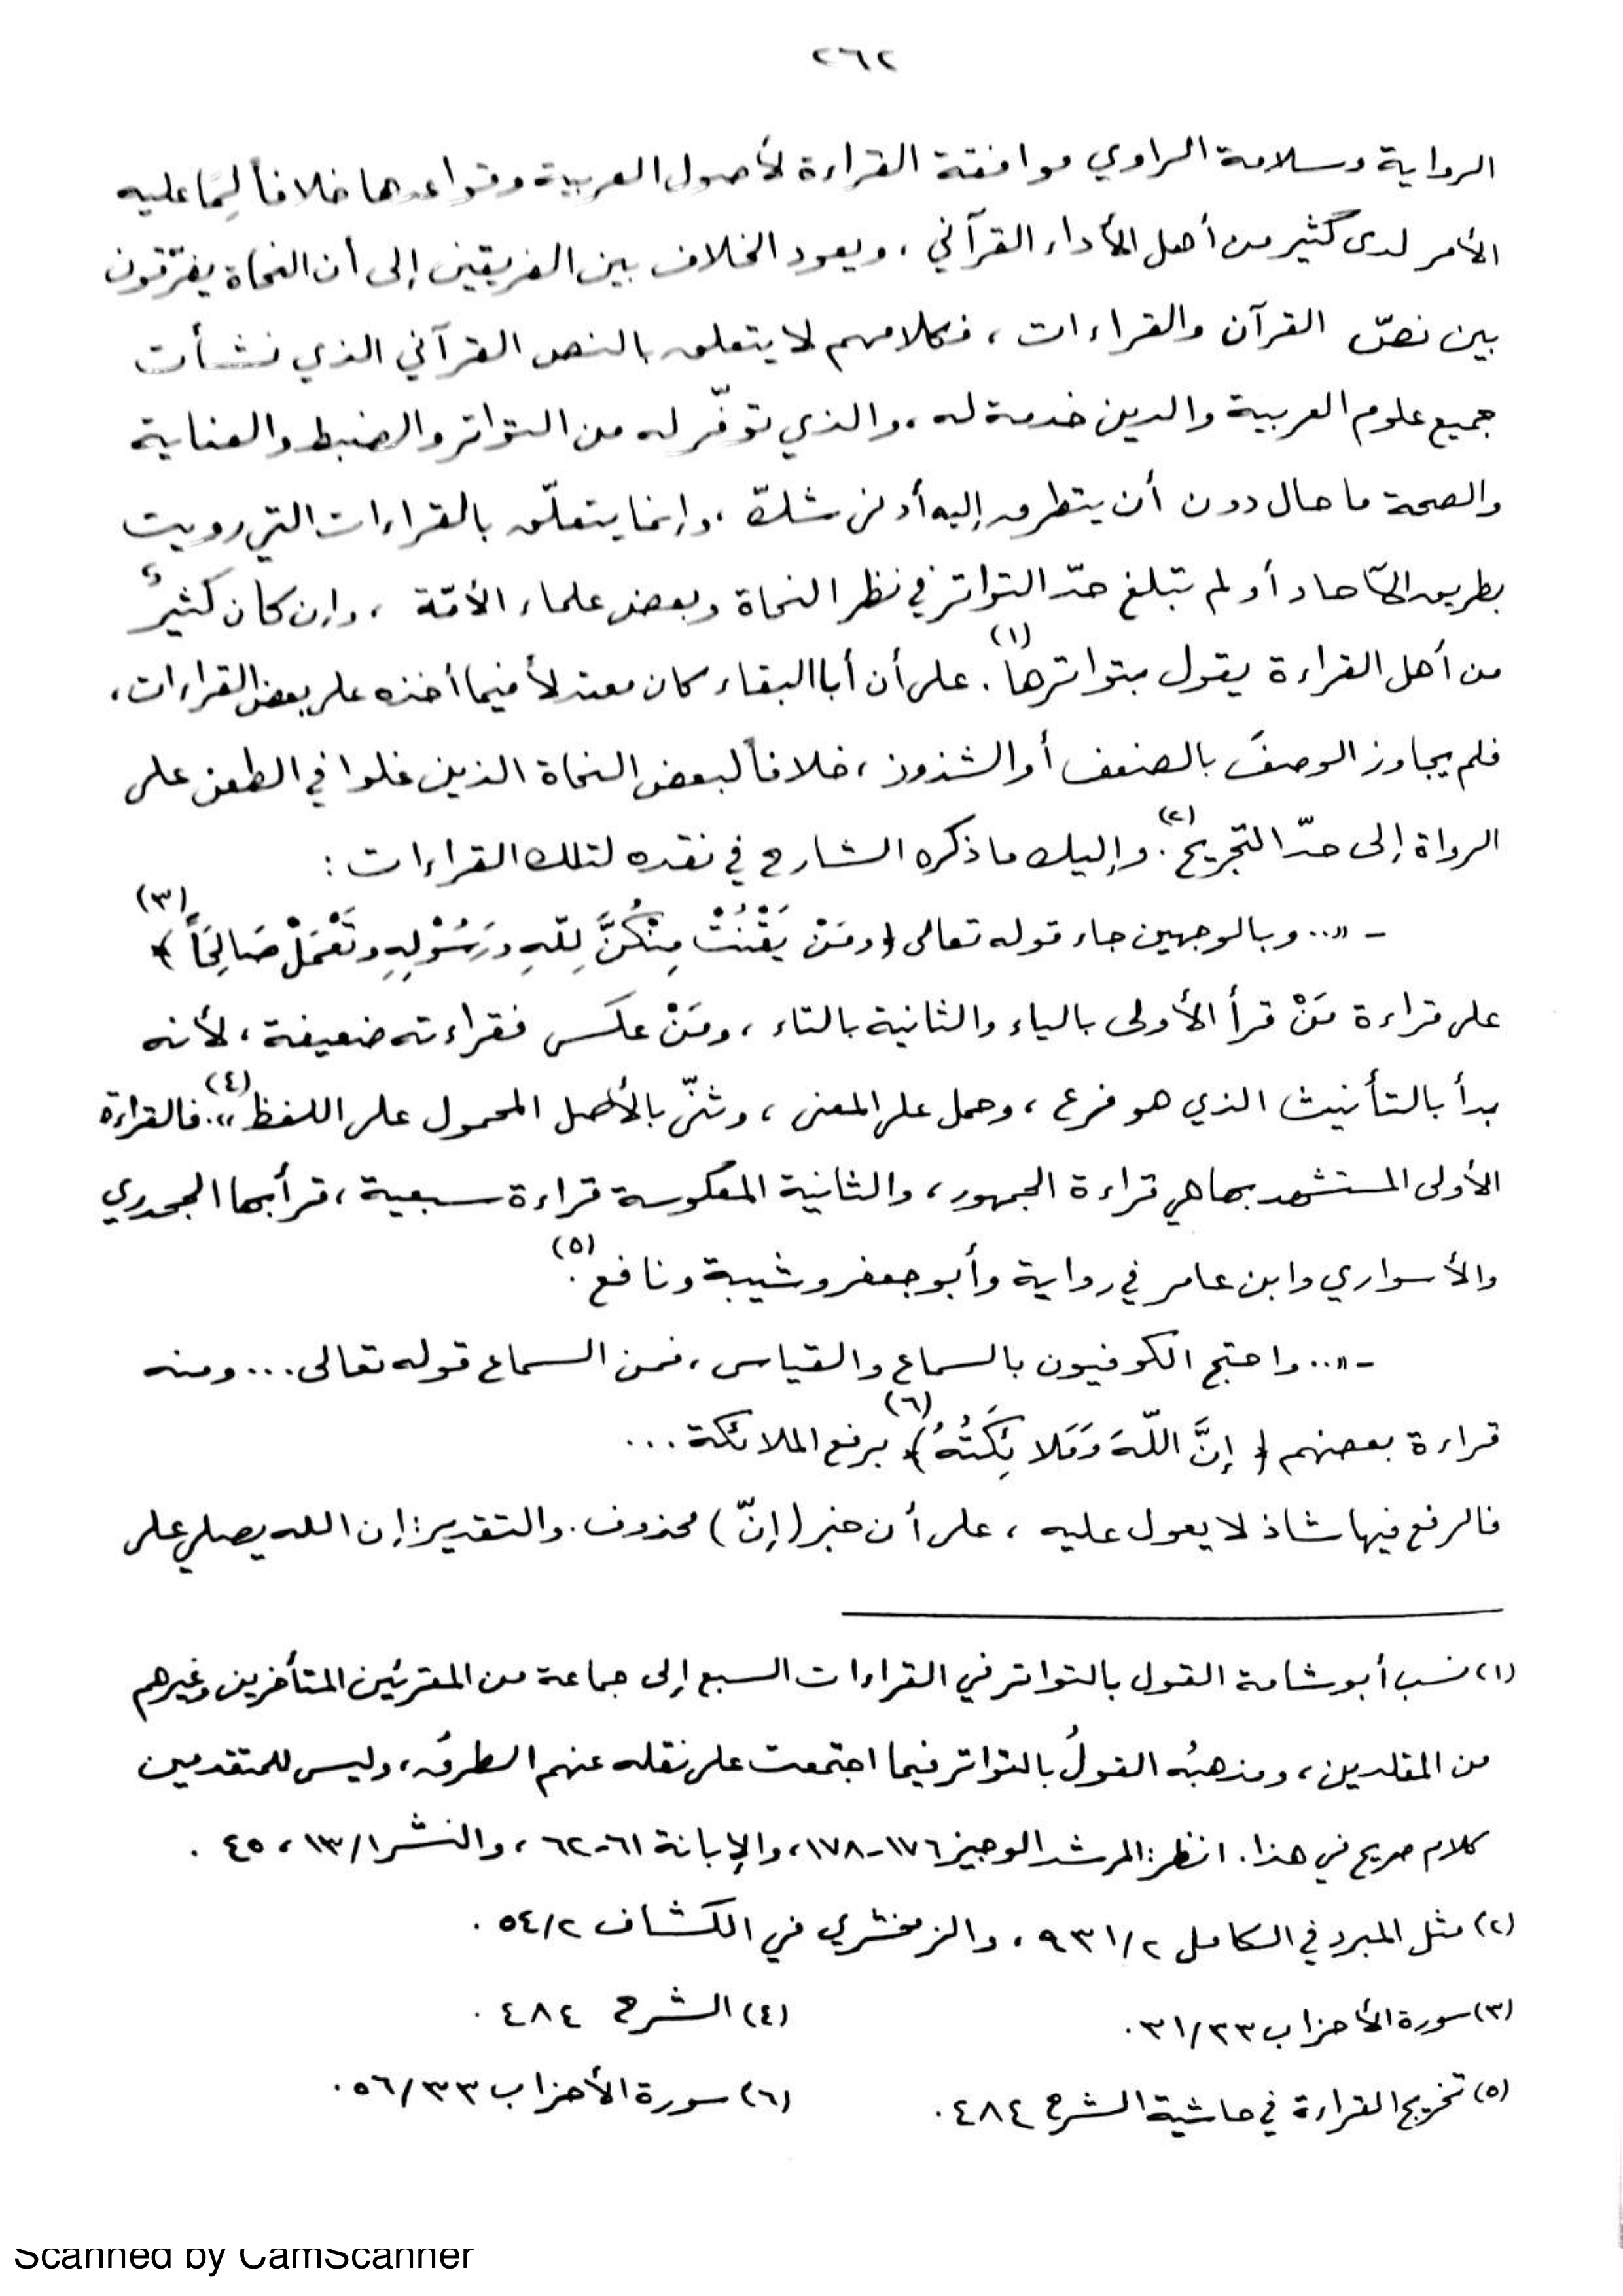 ٢٦٢
الرواية وسلامة الراوي موافقة القراءة لأصول العربية وقواعدها خلافاً لِمَا عليه
الأمر لدى كثير من أهل الأداء القرآني، ويعود الخلاف بين الفريقين إلى أن النحاة يفرّقون
بين نصّ القرآن والقراءات، فكلامهم لا يتعلق بالنص القرآني الذي نشأت
جميع علوم العربية والدين خدمة له، والذي توفّر له من التواتر والضبط والعناية
والصحة ما حال دون أن يتطرق إليه أدنى شكّ، وإنما يتعلّق بالقراءات التي رويت
بطريق الآحاد أو لم تبلغ حدّ التواتر في نظر النحاة وبعض علماء الأمّة، وإن كان كثيرٌ
من أهل القراءة يقول بتواترها(١). على أن أبا البقاء كان معتدلاً فيما أخذه على بعض القراءات،
فلم يجاوز الوصفَ بالضعف أو الشذوذ، خلافاً لبعض النحاة الذين غلوا في الطعن على
الرواة إلى حدّ التجريح(٢). وإليك ما ذكره الشارح في نقده لتلك القراءات:
- «.. وبالوجهين جاء قوله تعالى ﴿ومَنْ يَقْنُتْ مِنْكُنَّ لِلّهِ ورَسُوْلِهِ وتَعْمَلْ صَالِحَاً﴾(٣)
على قراءة مَنْ قرأ الأولى بالياء والثانية بالتاء، ومَنْ عكس فقراءته ضعيفة، لأنه
بدأ بالتأنيث الذي هو فرع، وحمل على المعنى، وثنّى بالأصل المحمول على اللفظ»(٤). فالقراءة
الأولى المستشهد بها هي قراءة الجمهور، والثانية المعكوسة قراءة سبعية، قرأ بها الجحدري
والأسواري وابن عامر في رواية وأبو جعفر وشيبة ونافع(٥).
- «.. واحتج الكوفيون بالسماع والقياس، فمن السماع قوله تعالى... ومنه
قراءة بعضهم ﴿إنَّ اللّهَ وَمَلَائِكَتُهُ﴾(٦) برفع الملائكة...
فالرفع فيها شاذ لا يعول عليه، على أن خبر (إنّ) محذوف. والتقدير: إن الله يصلي على
(١) نسب أبو شامة القول بالتواتر في القراءات السبع إلى جماعة من المقرئين المتأخرين وغيرهم
من المقلدين، ومذهبُه القولُ بالتواتر فيما اجتمعت على نقله عنهم الطرق، وليس للمتقدمين
كلام صريح في هذا. انظر: المرشد الوجيز ١٧٦-١٧٨، والإبانة ٦١-٦٢، والنشر ١/١٣، ٤٥.
(٢) مثل المبرد في الكامل ٩٣١/٢، والزمخشري في الكشاف ٥٤/٢.
(٣) سورة الأحزاب ٣١/٣٣. (٤) الشرح ٤٨٤.
(٥) تخريج القراءة في حاشية الشرح ٤٨٤. (٦) سورة الأحزاب ٥٦/٣٣.
Scanned by CamScanner